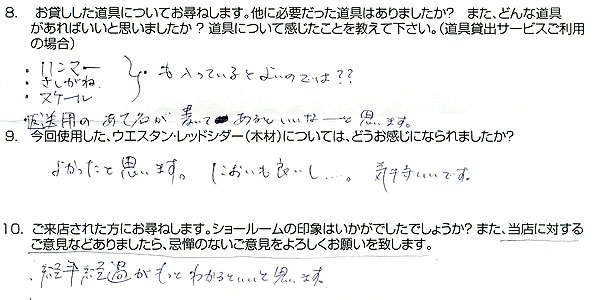 8. お貸しした道具についてお尋ねします。他に必要だった道具はありましたか? また、どんな道具
があればいいと思いましたか?道具について感じたことを教えて下さい。(道具貸出サービスご利用
の場合)
・ハンマー
・さしがね
・スケール
も入っているとよいのでは??
返送用のあて名が書いてあるといいなーと思います。
9. 今回使用した、ウエスタン・レッドシダー(木材)については、どうお感じになられましたか?
よかったと思います。においも良いし…。気持いいです。
10. ご来店された方にお尋ねします。ショールームの印象はいかがでしたでしょうか?また、当店に対する
ご意見などありましたら、忌憚のないご意見をよろしくお願いを致します。
・経年経過がもっとわかるといいと思います。